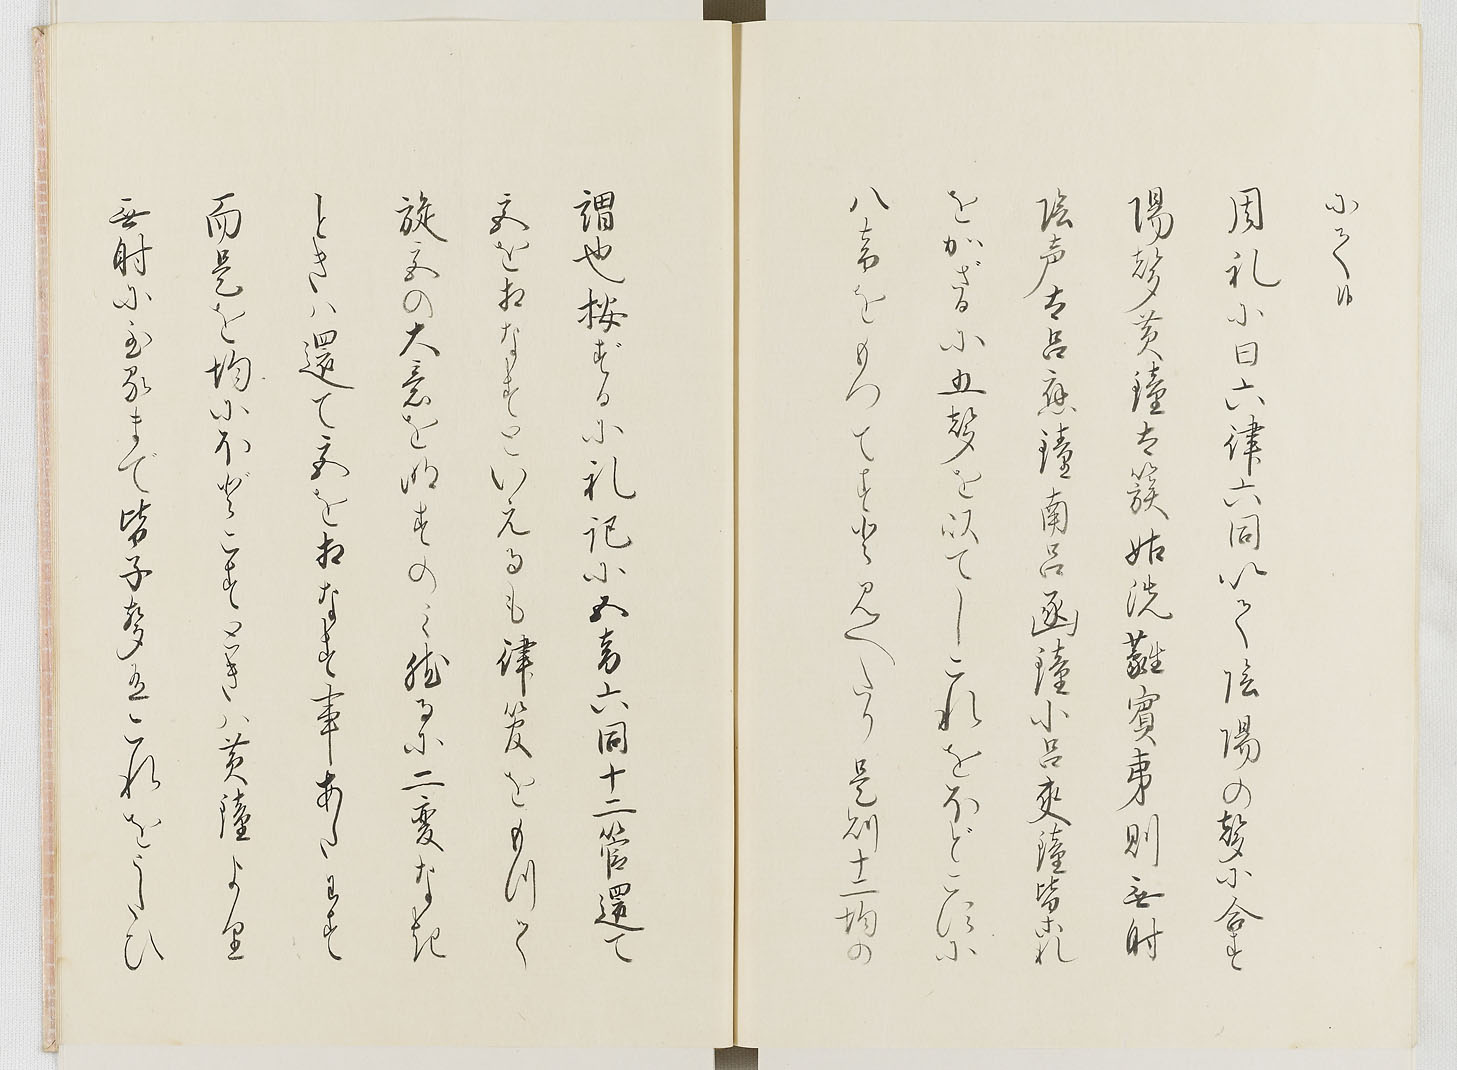 にてハ
周礼小曰六律六同以て陰陽の聲に合す
陽聲黄鐘太簇姑洗蕤賓夷則無射
陰声大呂應鐘南呂函鐘小呂夾鐘皆これ
をかざるに五聲を以てしこれをほどこすに
八音をもつてすと見へたり是則十二均の
謂也按ずるに礼記に五音六同十二管還て
宮を相なすといえるも律管をもつて
旋宮の大意を明すのミ然るに二変なき
ときハ還て宮を相なす事あたわず
而是を均にほどこすときハ黄鐘より
無射に至るまで皆子聲互これをうしなひ